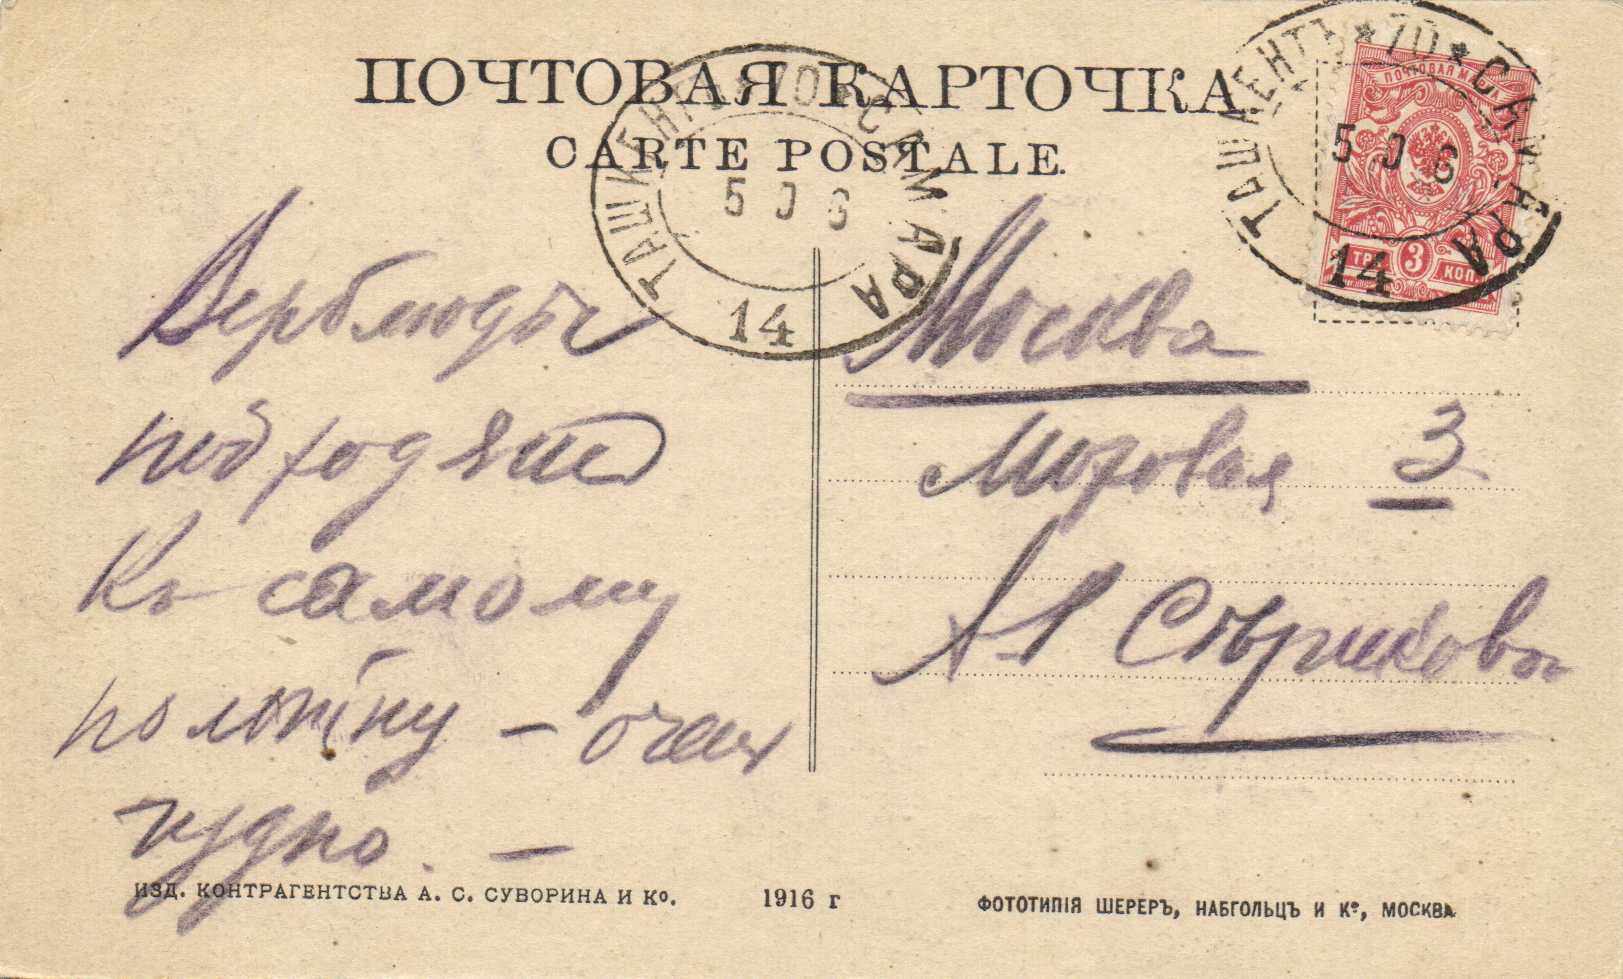 ПОЧТОВАЯ КАРТОЧКА
CARTE POSTALE.
ТАШКЕНТЪ * 70 * САМАРА
5 0 6
14
ТАШКЕНТЪ * 70 * САМАРА
5 0 6
14
ПОЧТОВАЯ МАРКА
ТРИ 3 КОП.
Верблюды
подходятъ
къ самому
полотну –
чудно. –
Москва
Моховая 3
ИЗД. КОНТРАГЕНТСТВА А. С. СУВОРИНА И Ко.
1916 г
ФОТОТИПІЯ ШЕРЕРЪ, НАБГОЛЬЦЪ И Ко, МОСКВА